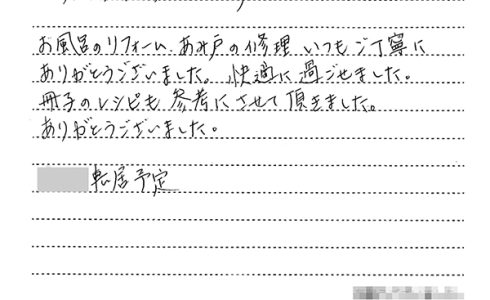 お風呂のリフォーム、あみ戸の修理 いつもご丁寧に
ありがとうございました。快適に過ごせました。
冊子のレシピも参考にさせて頂きました。
ありがとうございました。
転居予定